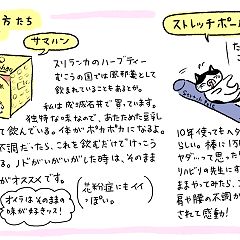 方たち
サマハン
スリランカのハーブティー
むこうの国では風邪薬として
飲まれていることもあるとか。
私は成城石井で買っています。
独特な味なので、あたためた豆乳
で飲んでいる。体がポカポカになるよ。
不調だったら、これを飲むだけでけっこう
る。ノドがいがいがした時は、そのまま
がオススメです。
オイラはそのままの
味が好きッス!
花粉症にもイイ
っぽい。
ストレッチポール
10年使ってもヘタ
らしい。棒に1万
ヤダーって思った
リハビリの先生に
まやってみたら、
肩や腰の不調が
されて感動!